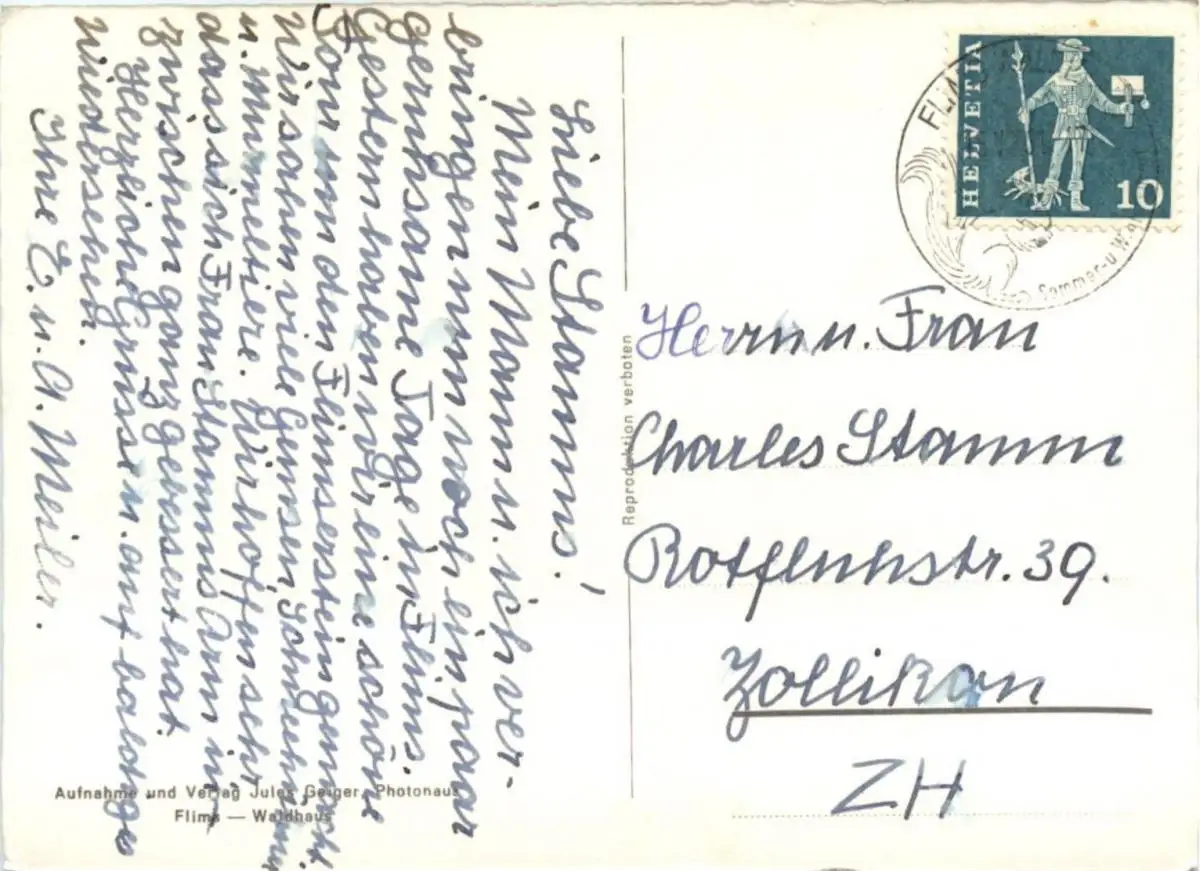 Liebe Stamms!
Mein Mann u. ich ver-
bringen nun noch ein paar
geruhsame Tage in Flims.
Gestern haben wir eine schöne
Tour um den Flimserstein gemacht.
Wir sahen viele Gemsen, Schneehühner
u. Murmeltiere. Wir hoffen sehr
dass sich Frau Stamms Arm in-
zwischen ganz gebessert hat.
Herzliche Grüsse u. auf baldiges
Wiedersehen.
Ihre E. u. A. Meiler.
Aufnahme und Verlag Jules Geiger, Photohaus
Flims — Waldhaus
Reproduktion verboten
HELVETIA
10
FLIMS WALDHAUS
Sommer- u
Herrn u. Frau
Charles Stamm
Rotfluhstr. 39.
Zollikon
ZH